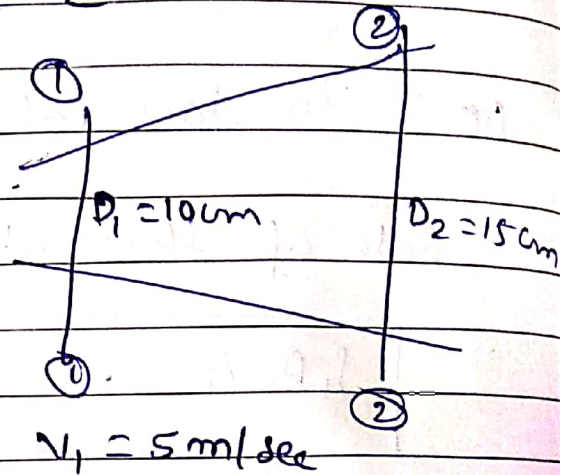 ②
①
D₁ = 10 cm
D₂ = 15 cm
①
②
V₁ = 5 m/sec